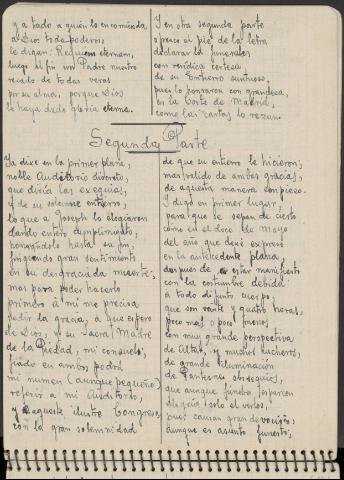 y a todo a quién lo encomienda
a Dios todo poderoso
le digan: Requiem eternam,
luego al fin un Padre nuestro
recado de todas veras
por su alma, porque Dios
le haya dado gloria eterna.
Y en otra segunda parte
ofrezco al pie de la letra
declarar la funerales
con verídica certeza
de su Entierro suntuoso,
pues lo honraron con grandeza,
en la Corte de Madrid,
como las cartas lo rezan.
Segunda Parte
Ya dixe en la primer plana,
noble Auditorio discreto,
que diría las exequias,
y de su solemne entierro,
lo que a Joseph lo elogiaron
dando entero cumplimiento,
honrándole hasta su fin,
fingiendo gran sentimiento
en su desgraciada muerte;
mas para poder hacerlo
primero a mí me precisa
pedir la gracia, a que espero
de Dios, y su Sacra Madre
de la Piedad, mi consuelo;
fiado en ambos podrá
mi numen (aunque pequeño)
referir a mi Auditorio,
y aqueste ilustre Congreso,
con la gran solemnidad
de que su entierro le hicieron;
mas valido de ambas gracias,
de aquesta manera empiezo.
Y digo en primer lugar,
para que se sepan de cierto
cómo en el doce de Mayo
del año que dexé expreso
en la antecedente plana
despues de estar manifiesto
con la costumbre debida
á todo difunto cuerpo,
que son veinte y quatro horas,
poco mas o poco menos;
con muy grande perspectiva
de Altar, y muchos hacheros,
de grande iluminación
de Panteones obsequios,
que aunque fúnebre, esparcen
alegría solo el verlos,
pues causan gran devoción:
aunque es asunto funesto;